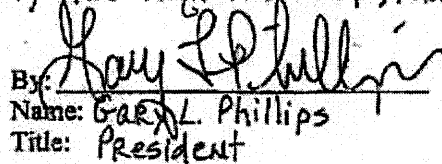 By: Gary L Phillips
Name: Gary L. Phillips
Title: President